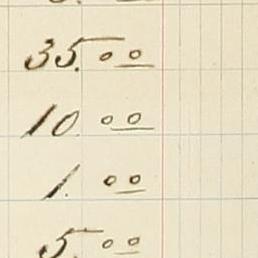 35.00
10.00
1.00
5.00